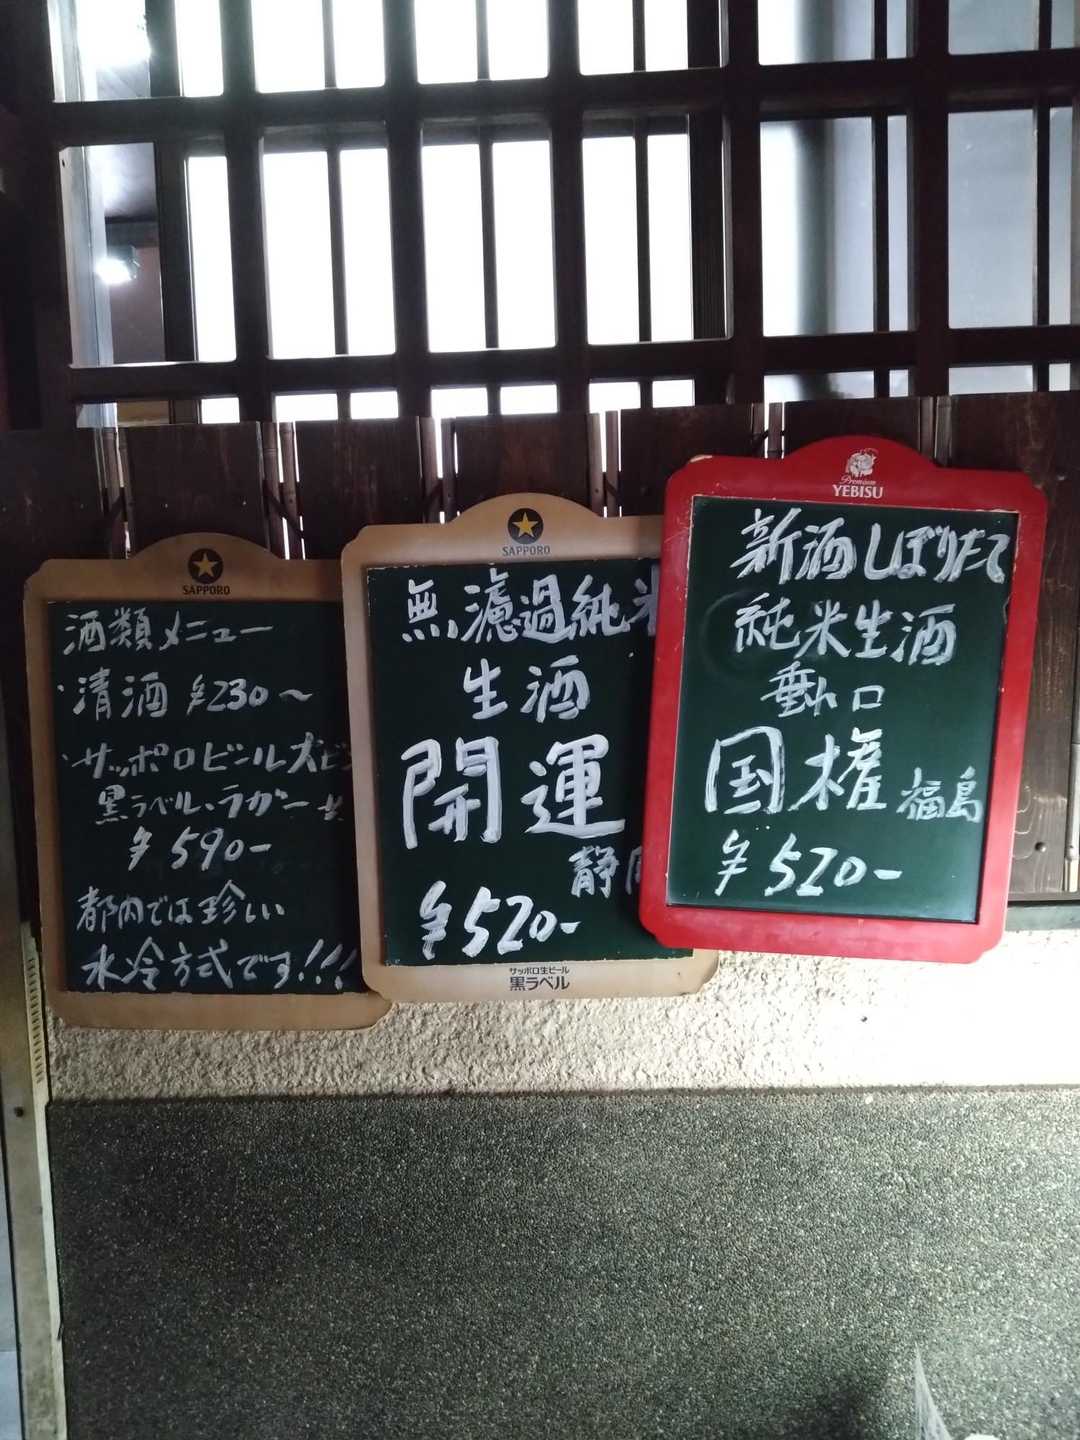 SAPPORO
酒類メニュー
・清酒 ¥230〜
・サッポロビール大ビ
黒ラベル、ラガー
¥590-
都内では珍しい
水冷方式です!!!
SAPPORO
無濾過純米
生酒
開運
静岡
¥520-
サッポロ生ビール
黒ラベル
Premium
YEBISU
新酒しぼりたて
純米生酒
国権 福島
¥520-